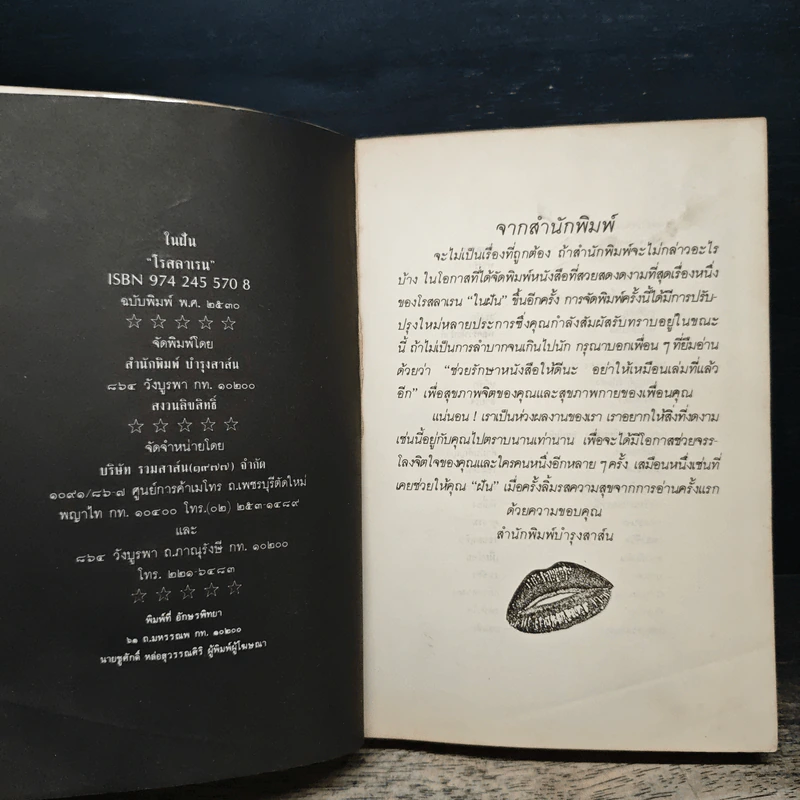 ในฝัน
"โรสลาเรน"
ISBN 974 245 570 8
ฉบับพิมพ์ พ.ศ. ๒๕๓๐
จัดพิมพ์โดย
สำนักพิมพ์ บำรุงสาส์น
๘๖๔ วังบูรพา กท. ๑๐๒๐๐
สงวนลิขสิทธิ์
จัดจำหน่ายโดย
บริษัท รวมสาส์น(๑๙๗๗) จำกัด
๑๐๙๑/๘๖-๗ ศูนย์การค้าเมโทร ถ.เพชรบุรีตัดใหม่
พญาไท กท. ๑๐๔๐๐ โทร.(๐๒) ๒๕๓-๑๔๘๙
และ
๘๖๔ วังบูรพา ถ.ภาณุรังษี กท. ๑๐๒๐๐
โทร. ๒๒๑-๖๔๘๓
พิมพ์ที่ อักษรพิทยา
๖๑ ถ.มหรรณพ กท. ๑๐๒๐๐
นายชูศักดิ์ หล่อสุวรรณศิริ ผู้พิมพ์ผู้โฆษณา
จากสำนักพิมพ์
จะไม่เป็นเรื่องที่ถูกต้อง ถ้าสำนักพิมพ์จะไม่กล่าวอะไร
บ้าง ในโอกาสที่ได้จัดพิมพ์หนังสือที่สวยสดงดงามที่สุดเรื่องหนึ่ง
ของโรสลาเรน "ในฝัน" ขึ้นอีกครั้ง การจัดพิมพ์ครั้งนี้ได้มีการปรับ-
ปรุงใหม่หลายประการซึ่งคุณกำลังสัมผัสรับทราบอยู่ในขณะ
นี้ ถ้าไม่เป็นการลำบากจนเกินไปนัก กรุณาบอกเพื่อน ๆ ที่ยืมอ่าน
ด้วยว่า "ช่วยรักษาหนังสือให้ดีนะ อย่าให้เหมือนเล่มที่แล้ว
อีก" เพื่อสุขภาพจิตของคุณและสุขภาพกายของเพื่อนคุณ
แน่นอน ! เราเป็นห่วงผลงานของเรา เราอยากให้สิ่งที่งดงาม
เช่นนี้อยู่กับคุณไปตราบนานเท่านาน เพื่อจะได้มีโอกาสช่วยจรร-
โลงจิตใจของคุณและใครคนหนึ่งอีกหลาย ๆ ครั้ง เสมือนหนึ่งเช่นที่
เคยช่วยให้คุณ "ฝัน" เมื่อครั้งลิ้มรสความสุขจากการอ่านครั้งแรก
ด้วยความขอบคุณ
สำนักพิมพ์บำรุงสาส์น